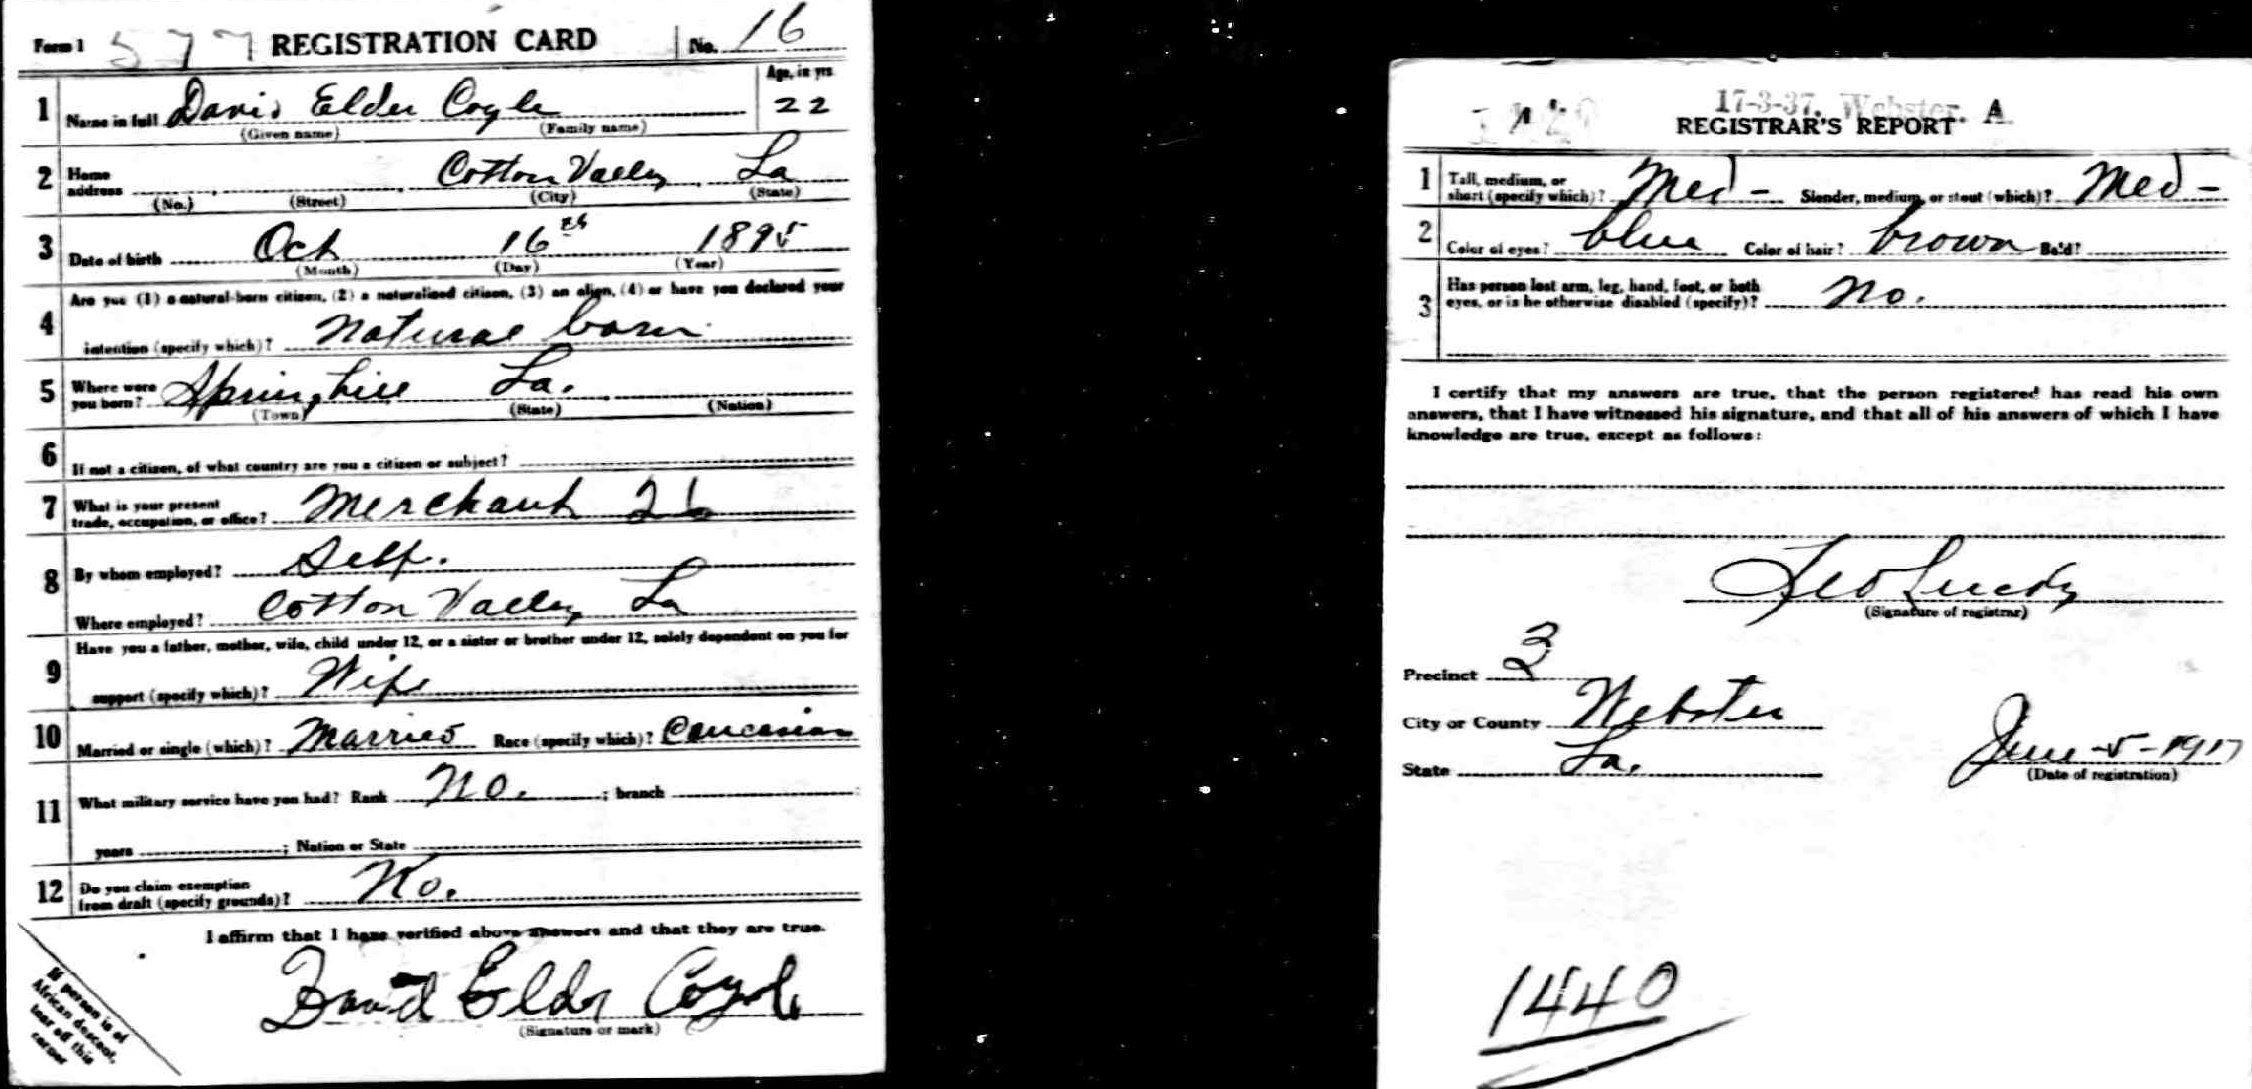 Form 1 577 REGISTRATION CARD No. 16
Age, in yrs
1 Name in full David Elder Coyle 22
(Given name) (Family name)
2 Home address Cotton Valley La
(No.) (Street) (City) (State)
3 Date of birth Oct 16th 1895
(Month) (Day) (Year)
Are you (1) a natural-born citizen, (2) a naturalized citizen, (3) an alien, (4) or have you declared your
4 intention (specify which)? Natural born
5 Where were you born? Springhill La.
(Town) (State) (Nation)
6 If not a citizen, of what country are you a citizen or subject?
7 What is your present trade, occupation, or office? Merchant 26
8 By whom employed? Self.
Where employed? Cotton Valley La
Have you a father, mother, wife, child under 12, or a sister or brother under 12, solely dependent on you for
9 support (specify which)? Wife
10 Married or single (which)? Married Race (specify which)? Caucasian
11 What military service have you had? Rank No. ; branch
years ; Nation or State
12 Do you claim exemption from draft (specify grounds)? No.
I affirm that I have verified above answers and that they are true.
David Elder Coyle
(Signature or mark)
If person is of
African descent,
tear off this
corner
17-3-37. Webster. A
REGISTRAR'S REPORT
1 Tall, medium, or short (specify which)? Med - Slender, medium, or stout (which)? Med -
2 Color of eyes? blue Color of hair? brown Bald?
3 Has person lost arm, leg, hand, foot, or both eyes, or is he otherwise disabled (specify)? No.
I certify that my answers are true, that the person registered has read his own
answers, that I have witnessed his signature, and that all of his answers of which I have
knowledge are true, except as follows:
Geo Lucky
(Signature of registrar)
Precinct 3
City or County Webster
State La. June - 5 - 1917
(Date of registration)
1440